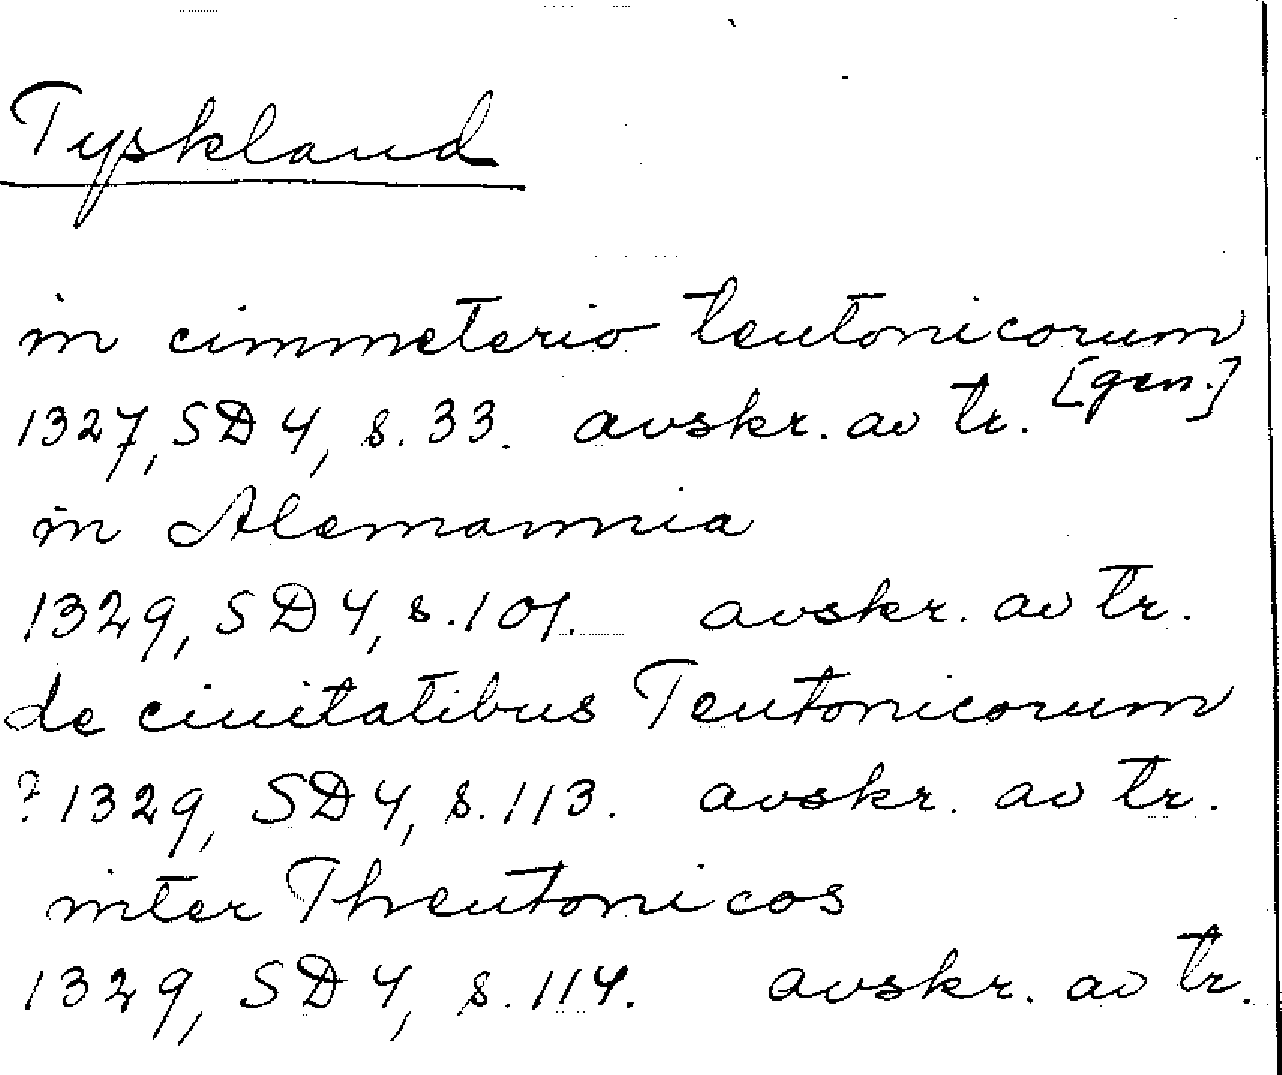 Tyskland
in cimmeterio teutonicorum
[gen.]
1327, SD 4, s. 33. avskr. av tr.
in Alemannia
1329, SD 4, s. 101. avskr. av tr.
de ciuitatibus Teutonicorum
? 1329, SD 4, s. 113. avskr. av tr.
inter Theutonicos
1329, SD 4, s. 114. avskr. av tr.